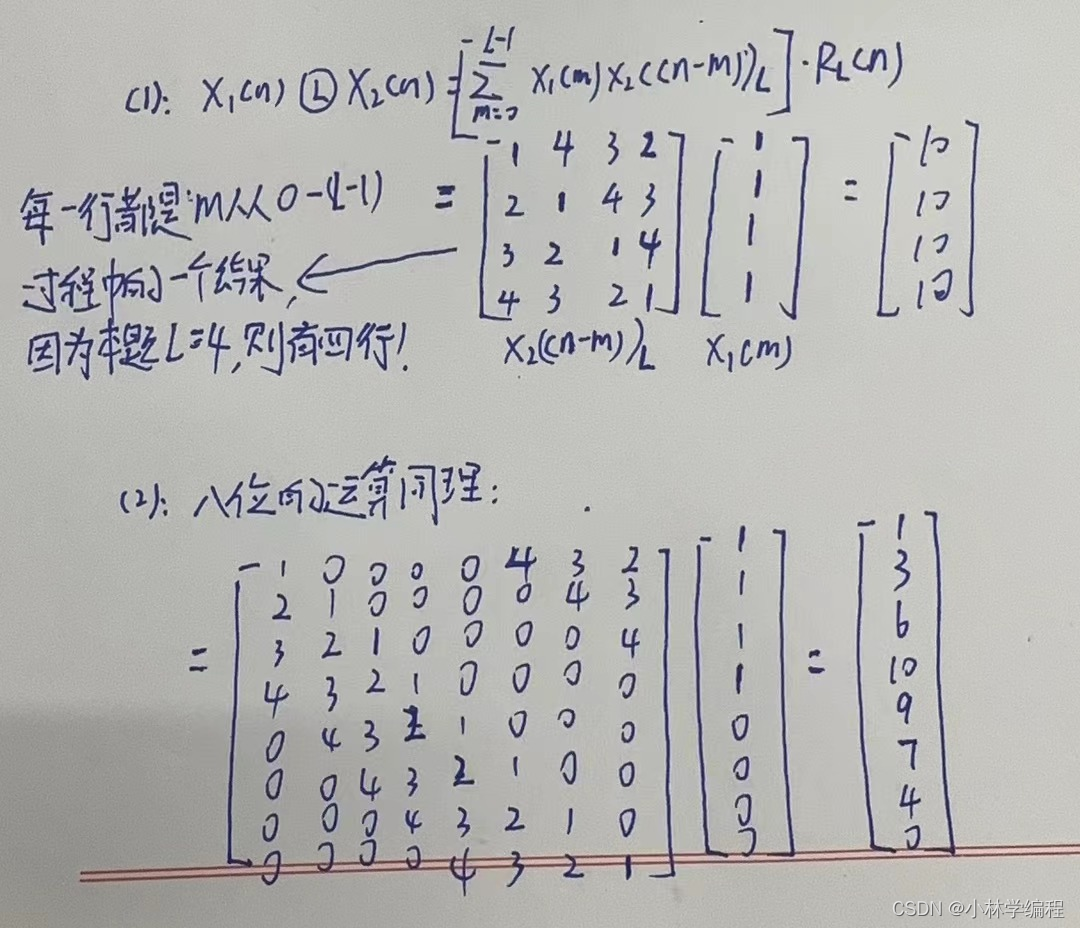 (1): X₁(n) Ⓛ X₂(n) = [∑_{m=0}^{L-1} X₁(m) X₂((n-m))_L] · R_L(n)
每一行都是:m从0-(L-1)
过程中的一个结果,
因为本题L=4,则有四行!
= [1 4 3 2] [1] = [10]
[2 1 4 3] [1] [10]
[3 2 1 4] [1] [10]
[4 3 2 1] [1] [10]
X₂((n-m))_L X₁(m)
(2): 八位的运算同理:
[1 0 0 0 0 4 3 2] [1] [1]
[2 1 0 0 0 0 4 3] [1] [3]
[3 2 1 0 0 0 0 4] [1] [6]
= [4 3 2 1 0 0 0 0] [1] = [10]
[0 4 3 2 1 0 0 0] [0] [9]
[0 0 4 3 2 1 0 0] [0] [7]
[0 0 0 4 3 2 1 0] [0] [4]
[0 0 0 0 4 3 2 1] [0] [0]
CSDN @小林学编程